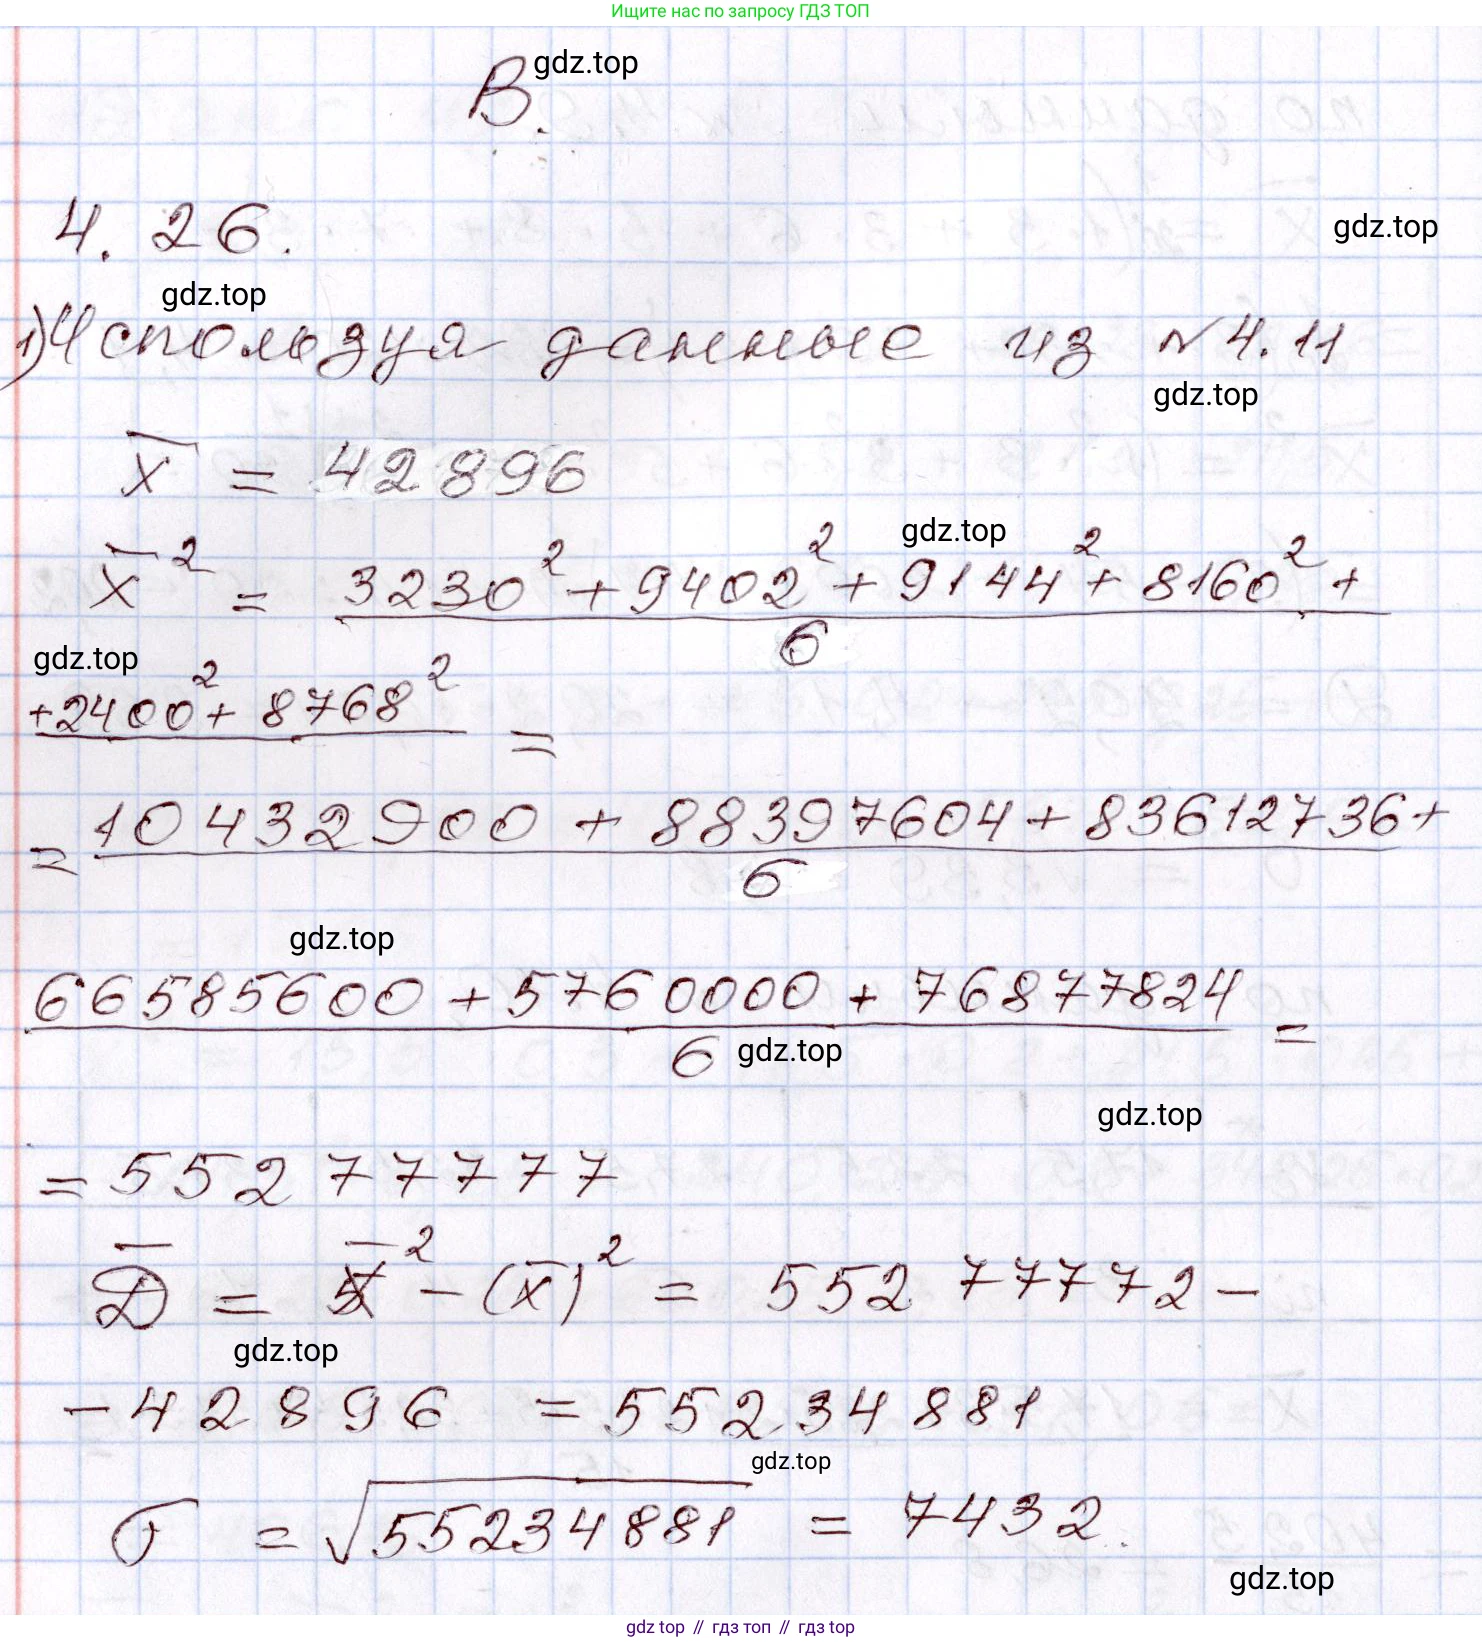 Ищите нас по запросу ГДЗ ТОП
В. gdz.top
4.26.
gdz.top
gdz.top
1) Используя данные из №4.11
gdz.top
x̅ = 42896
gdz.top
x̅² = (3230² + 9402² + 9144² + 8160² +) / 6
gdz.top
+2400² + 8768² =
= (10432900 + 88397604 + 83612736 +) / 6
gdz.top
(66585600 + 5760000 + 76877824) / 6 =
gdz.top
gdz.top
= 55277777
D̅ = x̅² - (x̅)² = 55277772 -
gdz.top
- 42896 = 55234881
gdz.top
σ = √55234881 = 7432.
gdz.top
gdz top // гдз топ // гдз top